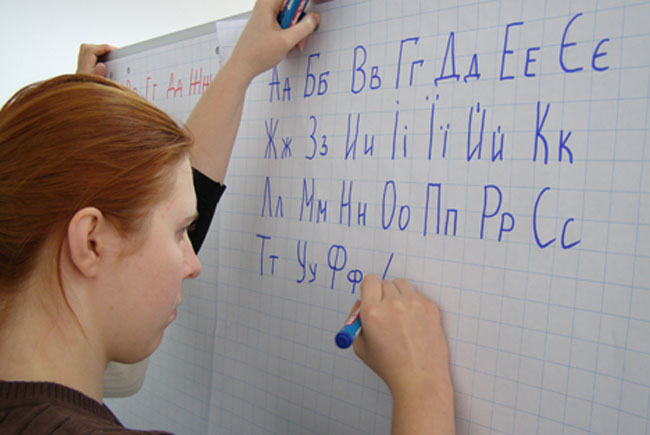 Аа Бб Вв Гг Дд Ее Єє
Жж Зз Ии Іі Її Йй Кк
Лл Мм Нн Оо Пп Рр Сс
Тт Уу Фф
Гг Дд Жж